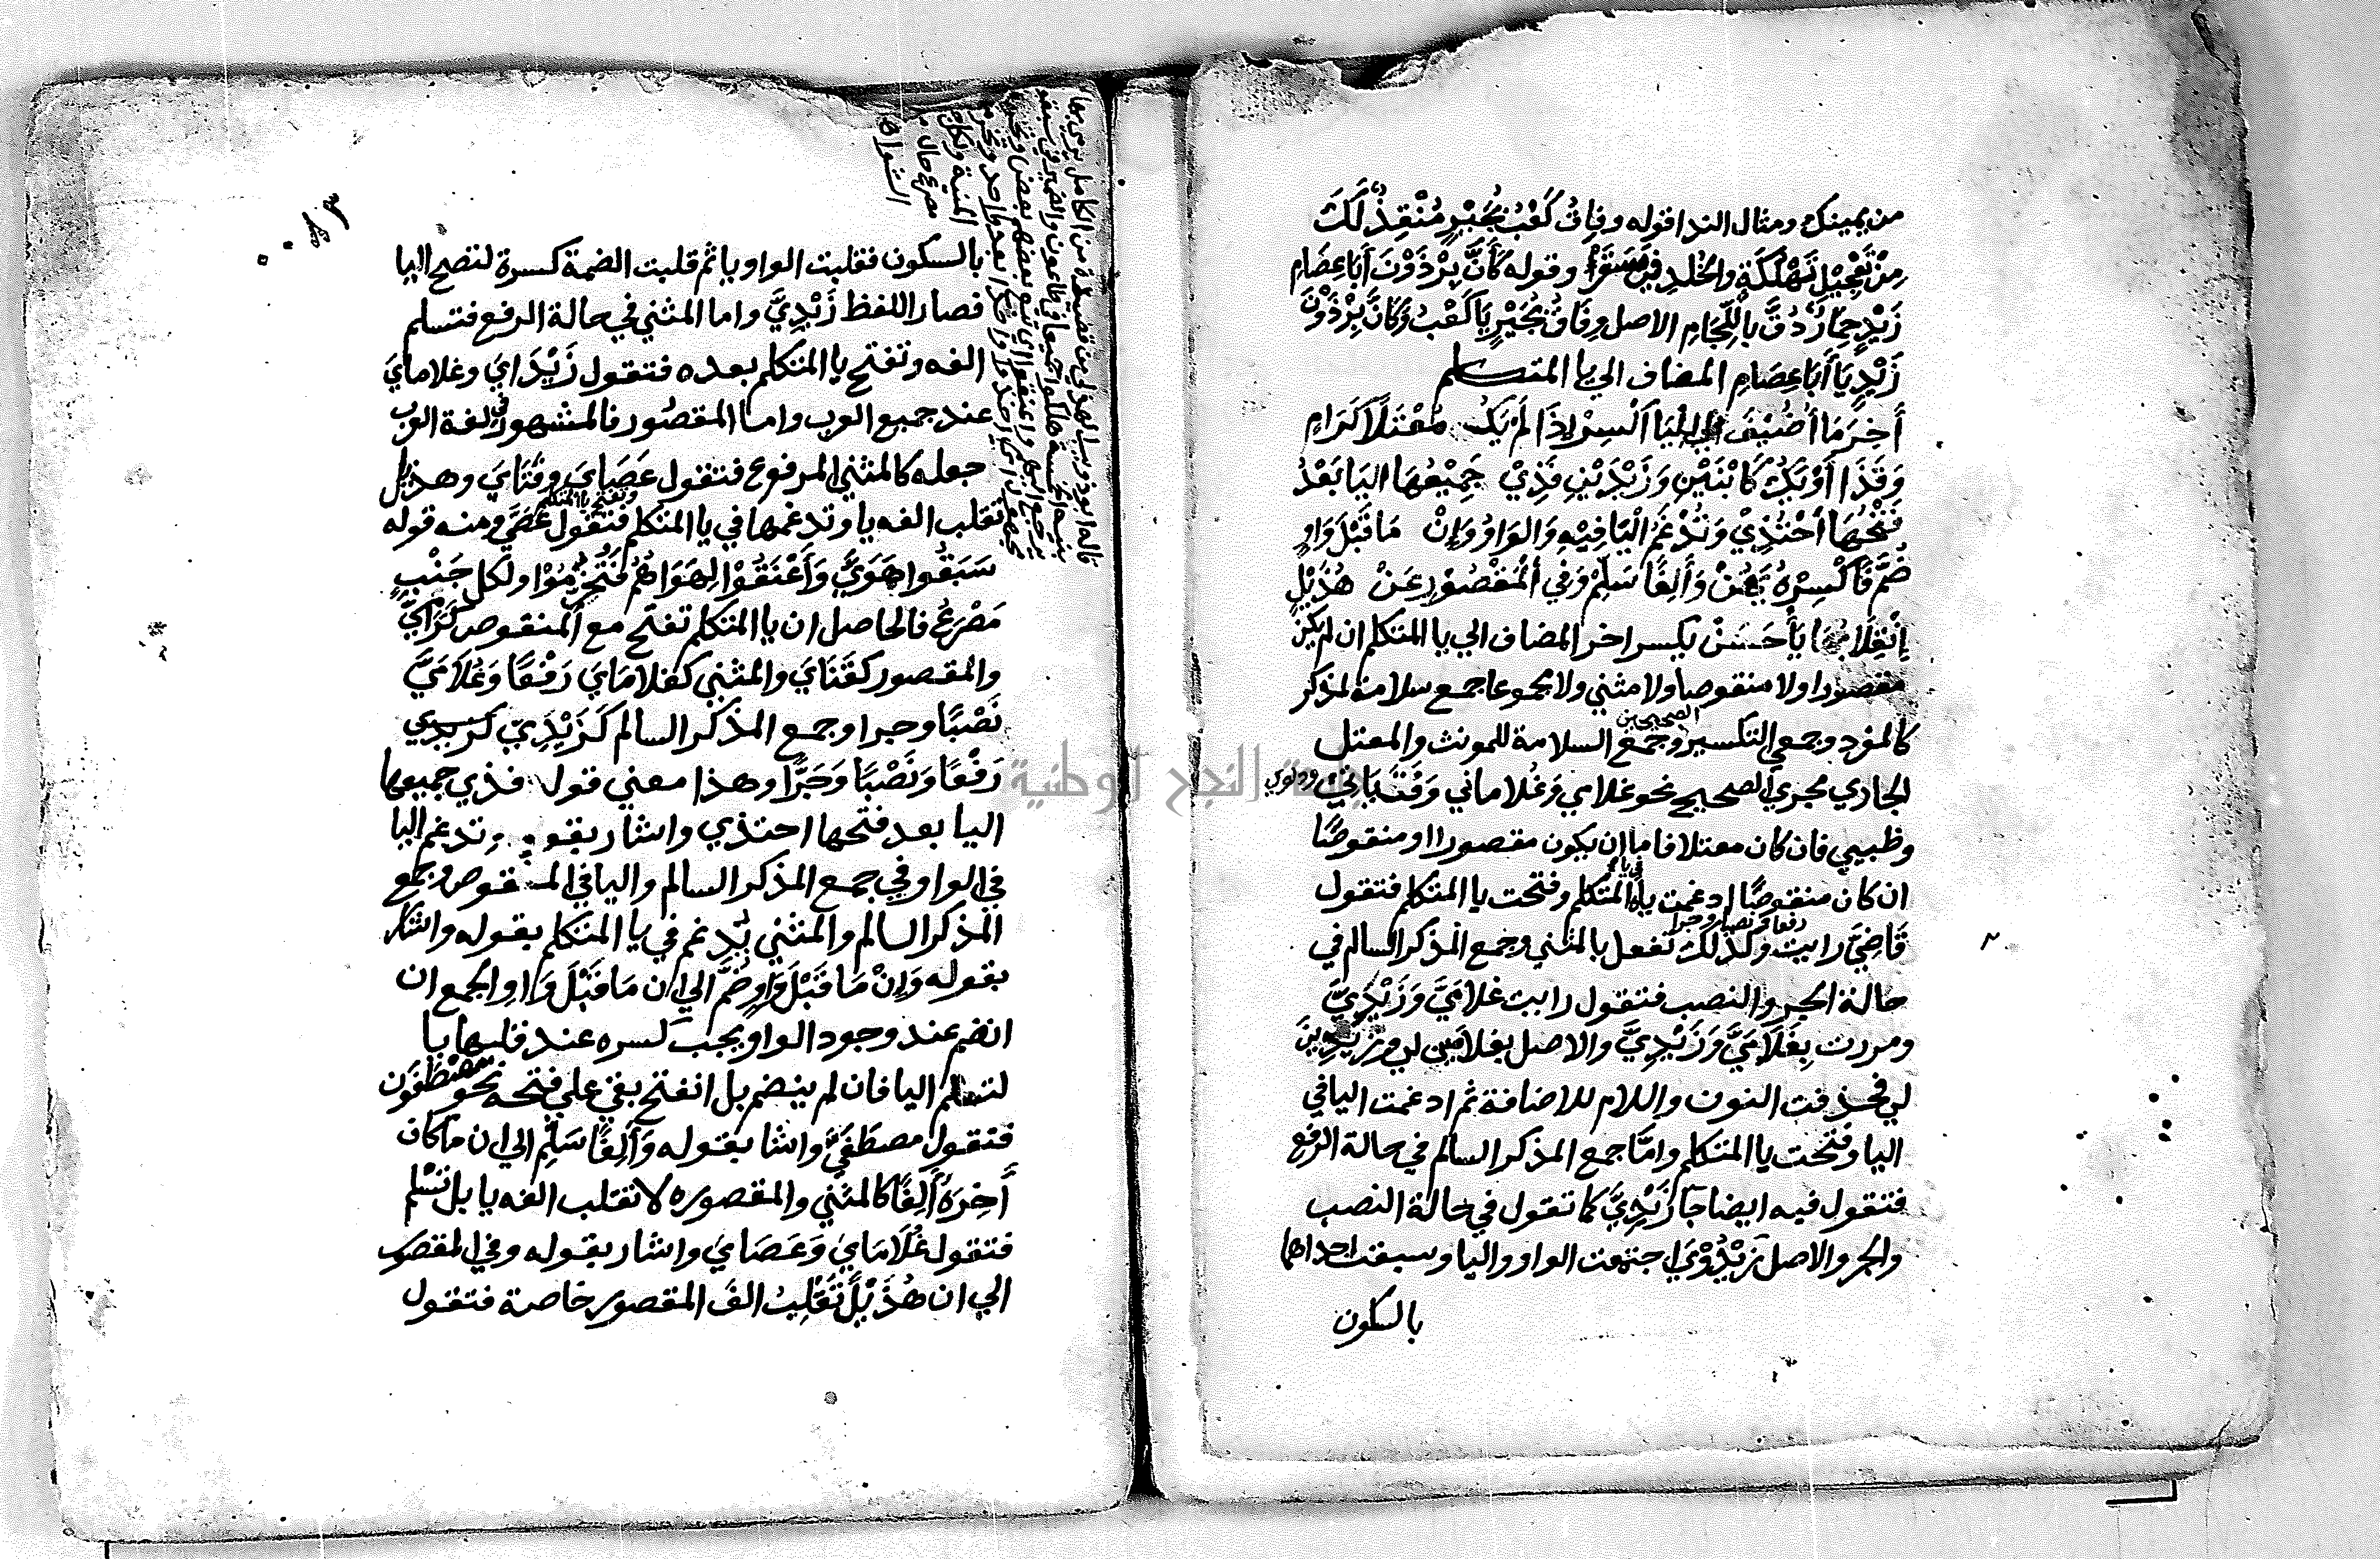 من يمينك ومثال الندا قوله وِفاقُ كَعْبُ بُجَيْرٍ مُنْقِذٌ لَكَ
مِنْ تَعْجِيْلِ تَهْلُكَةٍ والخُلدِ في سَقَرٍ وقوله كَأَنَّ بِرْذَوْنَ أَبَا عِصَامِ
زَيْدٍ حِمَارٌ دُقَّ بِاللِّجَامِ الاصل وِفَاقُ بُجَيْرٍ يَا كَعْبُ وَكَانَّ بِرْذَوْنَ
زَيْدٍ يَا أَبَا عِصَامِ المضاف الي يا المتكلم
أَخِرَ مَا أُضِيْفَ الى لِلْيَا اكْسِرْ إِذَا لَمْ يَكُ مُعْتَلًا كَرَامٍ
وَقَذَا أَوْ يَكُ كَابْنَيْنِ وَزَيْدِيْنِ فَذِيْ جَمِيْعُهَا اليَا بَعْدُ
فَتْحُهَا احْتُذِيْ وَتُدْغَمُ الْيَا فِيْهِ وَالوَاوُ وَإِنْ مَا قَبْلَ وَاوٍ
ضُمَّ فَاكْسِرْهُ يَهُنْ وَأَلِفًا سَلِّمْ وَفِي الْمَقْصُوْرِ عَنْ هُذَيْلٍ
إِنْقِلَابُهَا يَأً حَسَنْ يكسر اخر المضاف الي يا المتكلم ان لم يكن
مقصورا ولا منقوصا ولا مثني ولا مجموعا جمع سلامة لمذكر
كالمفرد وجمعي التكسير الصحيحين وجمع السلامة للمونث والمعتل
الجاري مجري الصحيح نحو غلامي وَغُلاماني وَفَتَيَاتي ودلوي
وظبيي فان كان معتلا فاما ان يكون مقصورا او منقوصًا
ان كان منقوصًا ادغمت ياه في يا المتكلم وفتحت يا المتكلم فتقول
قَاضِيَّ رفعا ونصبا وجرا وكذلك تفعل بالمثني وجمع المذكر السالم في
حالة الجر والنصب فتقول رايت غلامَيَّ وَزَيْدِيَّ
ومررت بِغُلَامَيَّ وَزَيْدِيَّ والاصل بغلامين لي وزيدِينَ
لي فحذفت النون واللام للاضافة ثم ادغمت اليا في
اليا وفتحت يا المتكلم وامَّا جمع المذكر السالم في حالة الرفع
فتقول فيه ايضا جَا زَيْدِيَّ كما تقول في حالة النصب
والجر والاصل زَيْدُوْيَ اجتمعت الواو واليا وسبقت احداهما
بالسكون
بالسكون فقلبت الواو يا ثم قلبت الضمة كسرة لتصح اليا
فصار اللفظ زَيْدِيَّ واما المثني في حالة الرفع فتسلم
الفه وتفتح يا المتكلم بعده فتقول زَيْدَايَ وغلامايَ
عند جميع العرب واما المقصُور فالمشهور في لغة العرب
جعله كالمثني المرفوع فتقول عَصَايَ وفَتَايَ وهذيل
تقلب الفه يا وتدغمها في يا المتكلم وتفتح يا المتكلم فتقول عَصَيَّ ومنه قوله
سَبَقُوا هَوَيَّ وَأَعْنَقُوْا لِهَوَاهُمْ فَتُخُرِّمُوْا ولكل جَنْبٍ
مَصْرَعُ فالحاصل ان يا المتكلم تفتح مع المنقوص كَرَامِيَّ
والمقصور كفَتَايَ والمثني كغلامَايَ رَفْعًا وَغُلَامَيَّ
نَصْبًا وجرا وجمع المذكر السالم كَزَيْدِيَّ كزيدي
رَفْعًا وَنَصْبًا وَجَرًّا وهذا معني قوله فذي جميعها
اليا بعد فتحها احتذي واشار بقو وتدغم اليا
في الواو في جمع المذكر السالم واليا في المنقوص وجمع
المذكر السالم والمثني تدغم في يا المتكلم بقوله واشار
بقوله وَإِنْ مَا قَبْلَ وَاوٍ ضُمَّ الي ان مَا قَبْلَ وَاوِ الجمع ان
انضم عند وجود الواو يجب كسره عند قلبها يا
لتسلم اليا فان لم ينضم بل انفتح بقي علي فتحه نحو مُصْطَفَوْن
فتقول مصطَفَيَّ واشا بقوله وَأَلِفًا سَلِّمْ الي ان ما كان
أَخِرَهُ أَلِفًا كالمثني والمقصوره لا تقلب الفه يا بل تسْلم
فتقول غُلَامَايَ وَعَصَايَ واشار بقوله وفي المقصور
الي ان هُذَيْلًا تَقْلِبُ الفَ المقصور خاصة فتقول